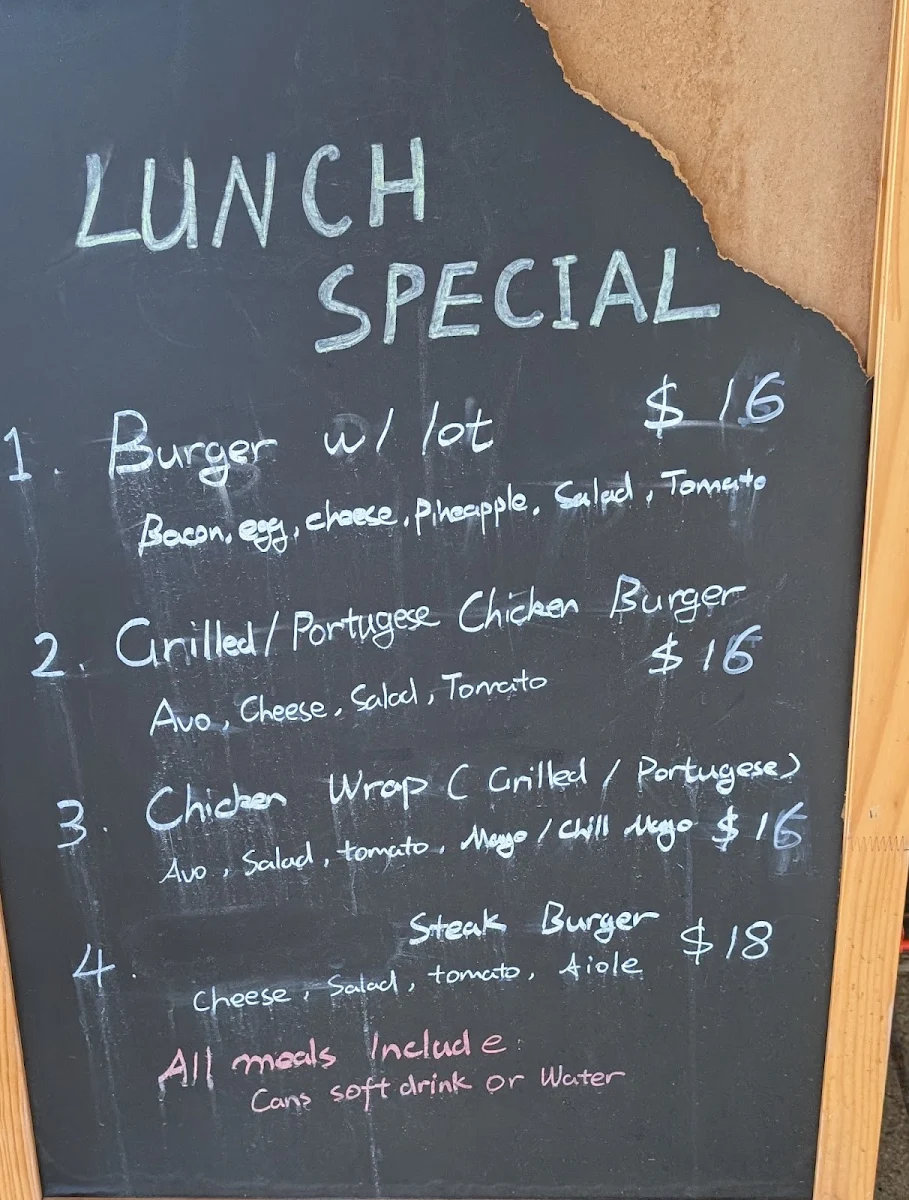 LUNCH
SPECIAL
1. Burger w/ lot $16
Bacon, egg, cheese, Pineapple, Salad, Tomato
2. Grilled/Portugese Chicken Burger
$16
Avo, Cheese, Salad, Tomato
3. Chicken Wrap (Grilled / Portugese)
Avo, Salad, tomato, Mayo / Chill Mayo $16
4. Steak Burger $18
Cheese, Salad, tomato, Aiole
All meals Include:
Cans soft drink or Water